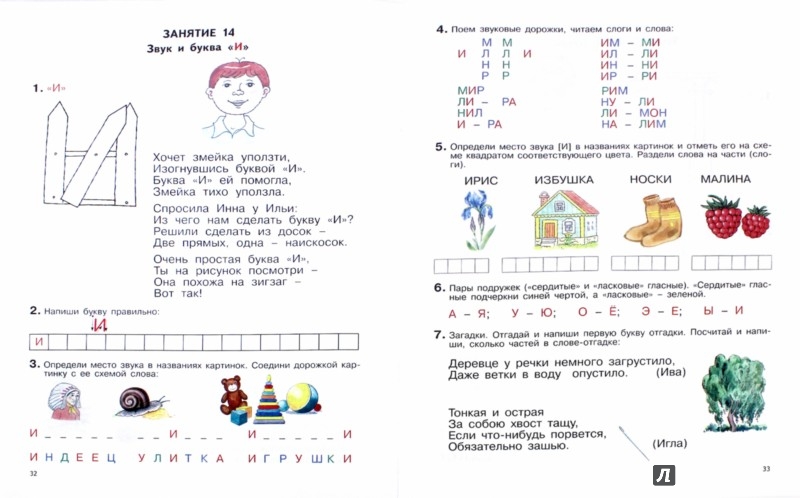 ЗАНЯТИЕ 14
Звук и буква «И»
1. «И»
Хочет змейка уползти,
Изогнувшись буквой «И».
Буква «И» ей помогла,
Змейка тихо уползла.
Спросила Инна у Ильи:
Из чего нам сделать букву «И»?
Решили сделать из досок –
Две прямых, одна – наискосок.
Очень простая буква «И»,
Ты на рисунок посмотри –
Она похожа на зигзаг –
Вот так!
2. Напиши букву правильно:
И
И
3. Определи место звука в названиях картинок. Соедини дорожкой кар-
тинку с ее схемой слова:
И _ _ _ _ _ И _ _ _ И _ _ _ _ _ _ И
ИНДЕЕЦ УЛИТКА ИГРУШКИ
32
4. Поем звуковые дорожки, читаем слоги и слова:
М М
И Л Л И
Н Н
Р Р
ИМ – МИ
ИЛ – ЛИ
ИН – НИ
ИР – РИ
МИР
ЛИ – РА
НИЛ
И – РА
РИМ
НУ – ЛИ
ЛИ – МОН
НА – ЛИМ
5. Определи место звука [И] в названиях картинок и отметь его на схе-
ме квадратом соответствующего цвета. Раздели слова на части (сло-
ги).
ИРИС ИЗБУШКА НОСКИ МАЛИНА
6. Пары подружек («сердитые» и «ласковые» гласные). «Сердитые» глас-
ные подчеркни синей чертой, а «ласковые» – зеленой.
А – Я; У – Ю; О – Ё; Э – Е; Ы – И
7. Загадки. Отгадай и напиши первую букву отгадки. Посчитай и напи-
ши, сколько частей в слове-отгадке:
Деревце у речки немного загрустило,
Даже ветки в воду опустило. (Ива)
Тонкая и острая
За собою хвост тащу,
Если что-нибудь порвется,
Обязательно зашью. (Игла)
33
Л